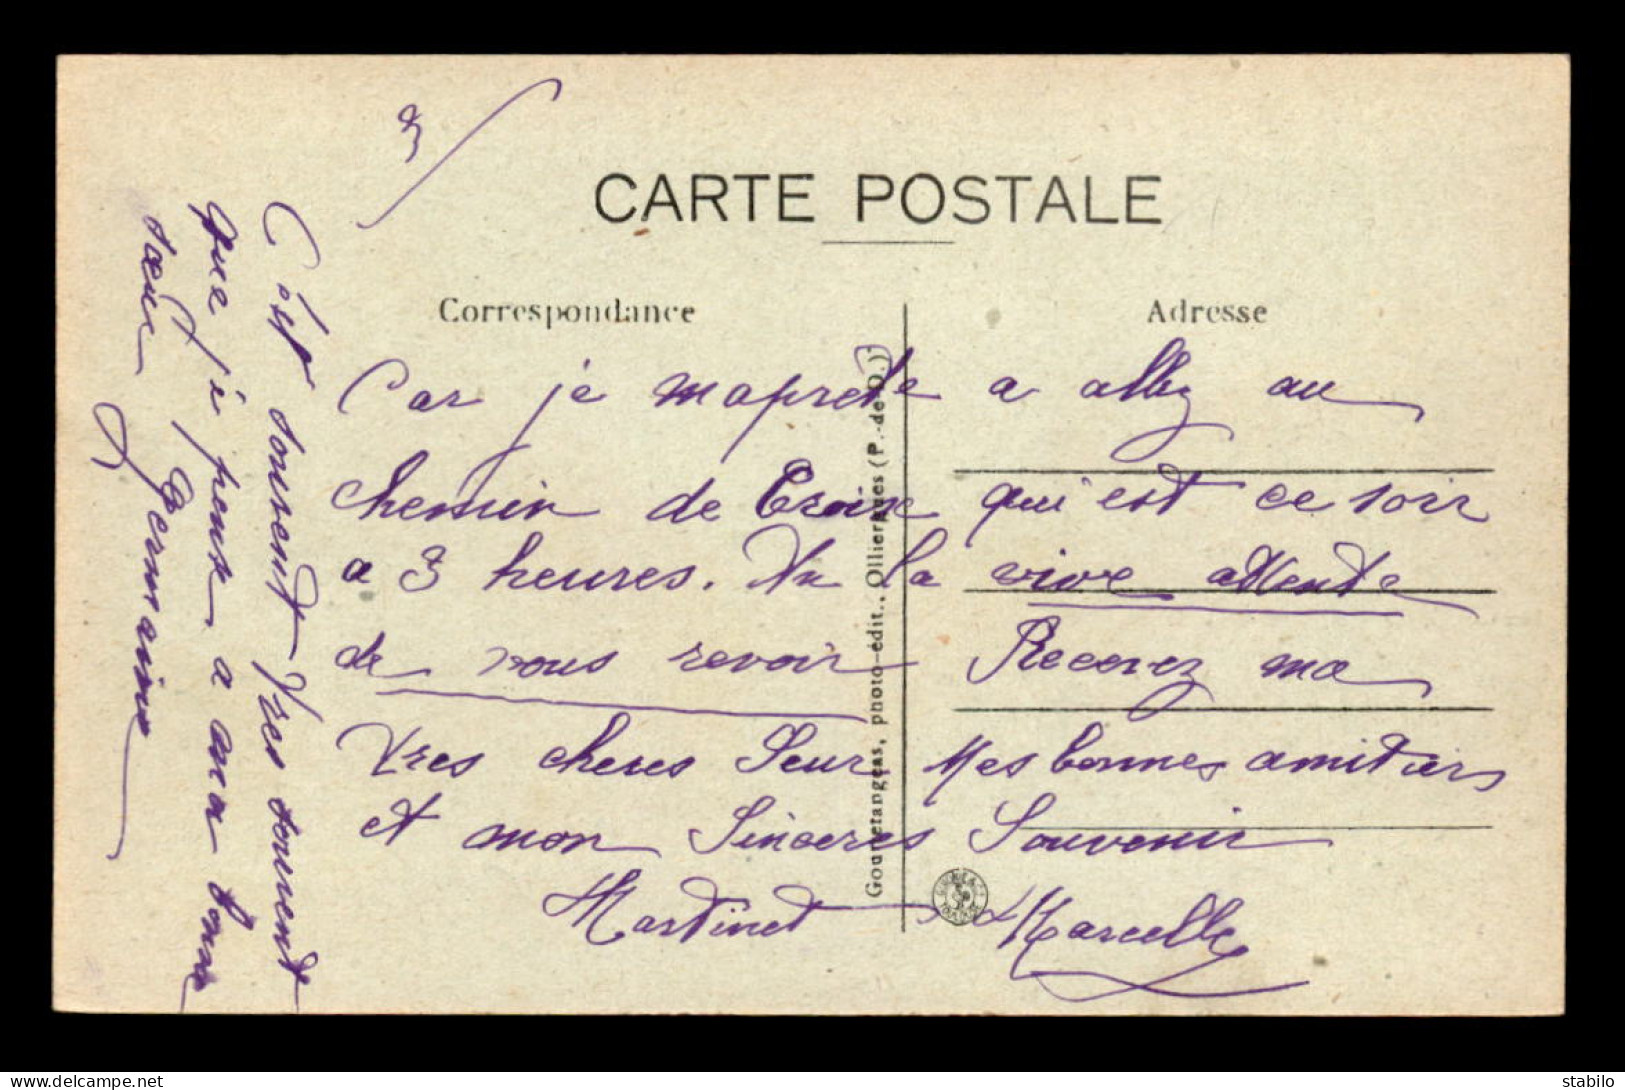 2/
CARTE POSTALE
Correspondance
Adresse
Car je m'aprete a allez au
chemin de Croix qui est ce soir
a 3 heures. Au la vive attente
de vous revoir Recevez ma
tres cheres Seur Mes bonnes amitiers
et mon Sinceres Souvenir
Martinet Marcelle
C'est souvent tres souvent
que je pense a ma bonne
soeur Germaine
Gouttetangeas, photo-édit., Olliergues (P.-de-D.)
delcampe.net
stabilo